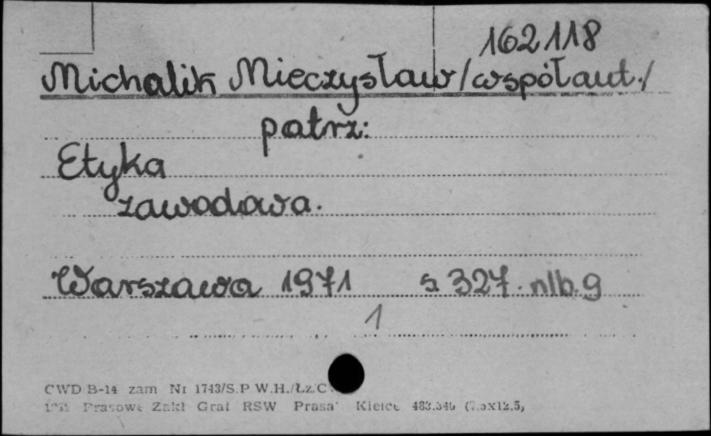 162118
Michalik Mieczysław /współaut./
patrz:
Etyka
zawodowa.
Warszawa 1971 s 327. nlb. 9
1
CWD B-14 zam Nr 1743/S.P W.H./Łz.C
Prasowe Zakł Graf RSW Prasa Kielce